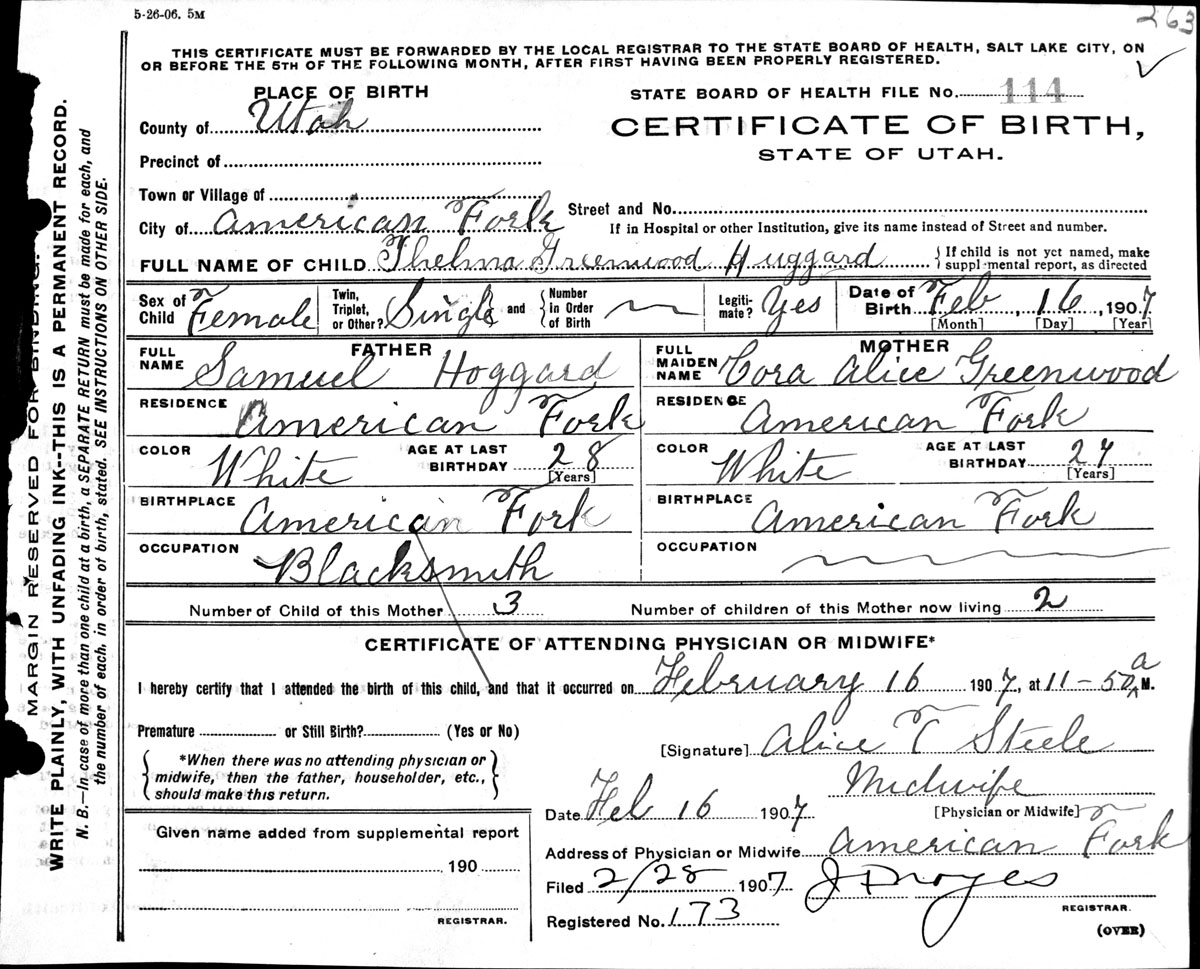 5-26-06. 5M
263
THIS CERTIFICATE MUST BE FORWARDED BY THE LOCAL REGISTRAR TO THE STATE BOARD OF HEALTH, SALT LAKE CITY, ON
OR BEFORE THE 5TH OF THE FOLLOWING MONTH, AFTER FIRST HAVING BEEN PROPERLY REGISTERED.
PLACE OF BIRTH
STATE BOARD OF HEALTH FILE No. 114
County of Utah
CERTIFICATE OF BIRTH,
STATE OF UTAH.
Precinct of
Town or Village of
City of American Fork
Street and No.
If in Hospital or other Institution, give its name instead of Street and number.
FULL NAME OF CHILD Thelma Greenwood Huggard { If child is not yet named, make
supplmental report, as directed
Sex of Child Female
Twin, Triplet, or Other? Single and { Number in Order of Birth
Legiti-mate? Yes
Date of Birth Feb, 16, 1907
[Month] [Day] [Year]
FATHER
FULL NAME Samuel Hoggard
RESIDENCE American Fork
COLOR White AGE AT LAST BIRTHDAY 28
[Years]
BIRTHPLACE American Fork
OCCUPATION Blacksmith
MOTHER
FULL MAIDEN NAME Cora Alice Greenwood
RESIDENCE American Fork
COLOR White AGE AT LAST BIRTHDAY 27
[Years]
BIRTHPLACE American Fork
OCCUPATION
Number of Child of this Mother 3 Number of children of this Mother now living 2
CERTIFICATE OF ATTENDING PHYSICIAN OR MIDWIFE*
I hereby certify that I attended the birth of this child, and that it occurred on February 16 1907, at 11-50 a M.
Premature or Still Birth? (Yes or No)
{ *When there was no attending physician or
midwife, then the father, householder, etc.,
should make this return. }
[Signature] Alice T Steele
Midwife
[Physician or Midwife]
Date Feb 16 1907
Address of Physician or Midwife American Fork
Filed 2/28 1907 J F Noyes
REGISTRAR.
Registered No. 173
(OVER)
Given name added from supplemental report
190
REGISTRAR.
MARGIN RESERVED FOR BINDING.
WRITE PLAINLY, WITH UNFADING INK--THIS IS A PERMANENT RECORD.
N. B.—In case of more than one child at a birth, a SEPARATE RETURN must be made for each, and
the number of each, in order of birth, stated. SEE INSTRUCTIONS ON OTHER SIDE.